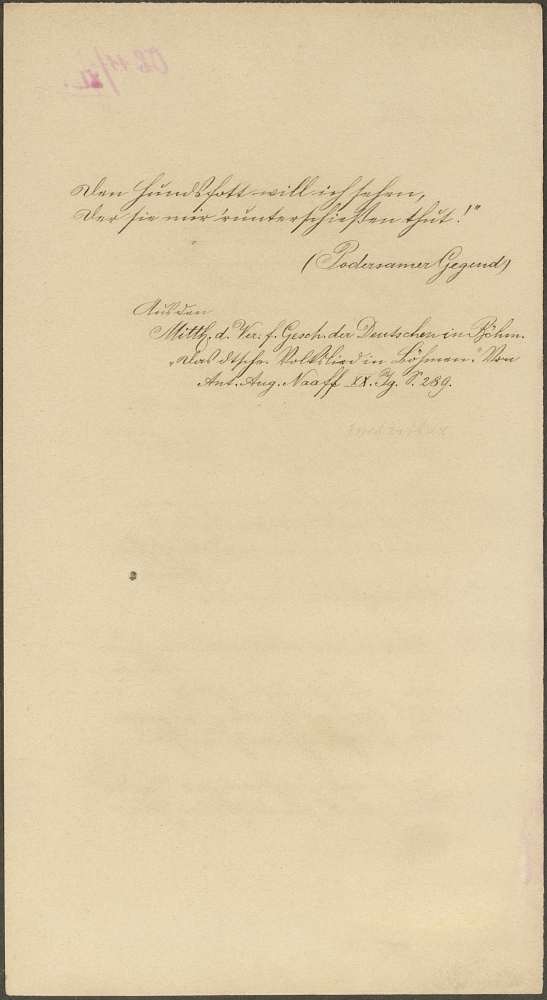 Den Hundsfott will ich sehen,
Der sie mir 'runterschießen thut!"
(Podersamer Gegend)
Aus den
Mitth. d. Ver. f. Gesch. der Deutschen in Böhm.
„Das dtsche. Volkslied in Böhmen." Von
Ant. Aug. Naaff XX. Jg. S. 289.